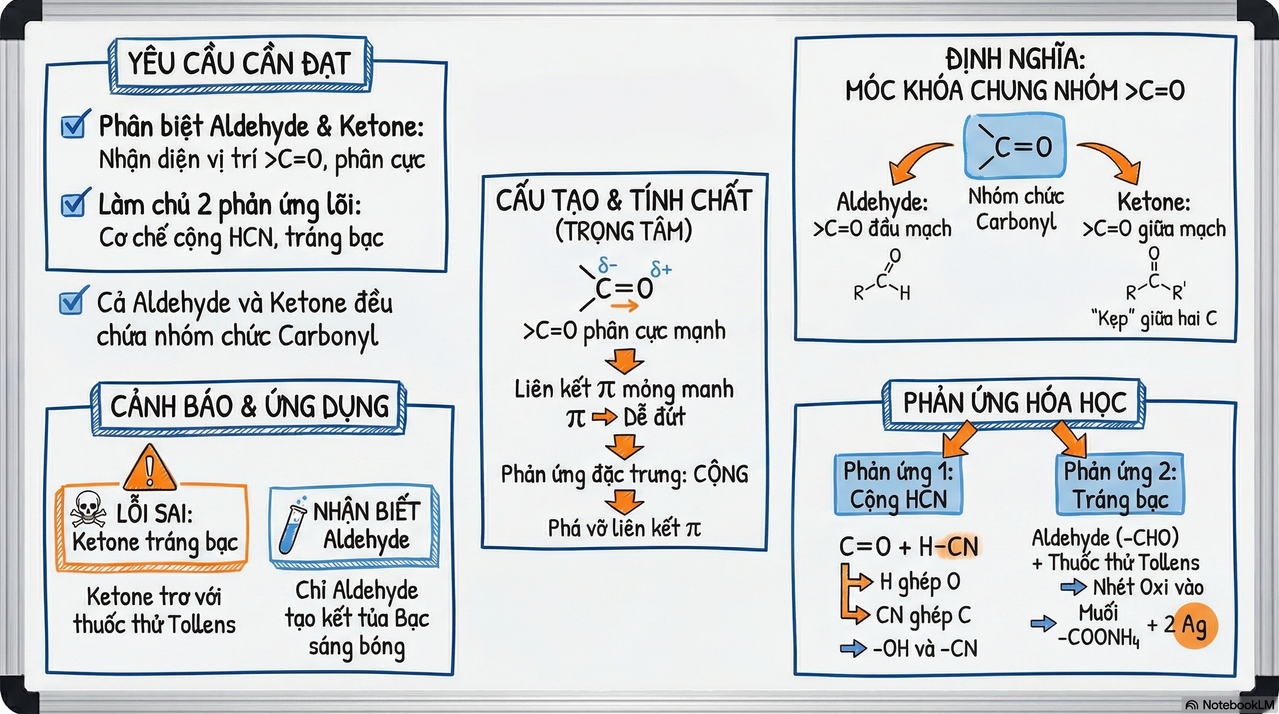 YÊU CẦU CẦN ĐẠT
Phân biệt Aldehyde & Ketone:
Nhận diện vị trí >C=O, phân cực
Làm chủ 2 phản ứng lõi:
Cơ chế cộng HCN, tráng bạc
Cả Aldehyde và Ketone đều
chứa nhóm chức Carbonyl
CẢNH BÁO & ỨNG DỤNG
LỖI SAI:
Ketone tráng bạc
Ketone trơ với
thuốc thử Tollens
NHẬN BIẾT
Aldehyde
Chỉ Aldehyde
tạo kết tủa Bạc
sáng bóng
CẤU TẠO & TÍNH CHẤT
(TRỌNG TÂM)
δ- δ+
C=O
>C=O phân cực mạnh
Liên kết π mỏng manh
π Dễ đứt
Phản ứng đặc trưng: CỘNG
Phá vỡ liên kết π
ĐỊNH NGHĨA:
MÓC KHÓA CHUNG NHÓM >C=O
C=O
Nhóm chức
Carbonyl
Aldehyde:
>C=O đầu mạch
O
R C H
Ketone:
>C=O giữa mạch
O
R C R'
"Kẹp" giữa hai C
PHẢN ỨNG HÓA HỌC
Phản ứng 1:
Cộng HCN
C=O + H-CN
H ghép O
CN ghép C
-OH và -CN
Phản ứng 2:
Tráng bạc
Aldehyde (-CHO)
+ Thuốc thử Tollens
Nhét Oxi vào
Muối
-COONH₄ + 2 Ag
NotebookLM